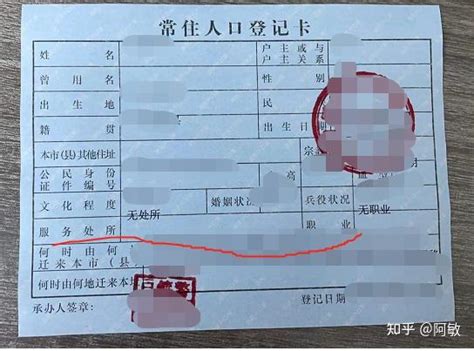 常住人口登记卡
姓名 户主或与户主关系
曾用名 性别
出生地 民
籍贯 出生日期
本市(县)其他住址 宗
公民身份证件编号 高
文化程度 婚姻状况 兵役状况
无处所 无职业
服务处所 职业
何时由何
迁来本市(县
何时由何地迁来本
承办人签章: 登记日期
知乎 @阿敏